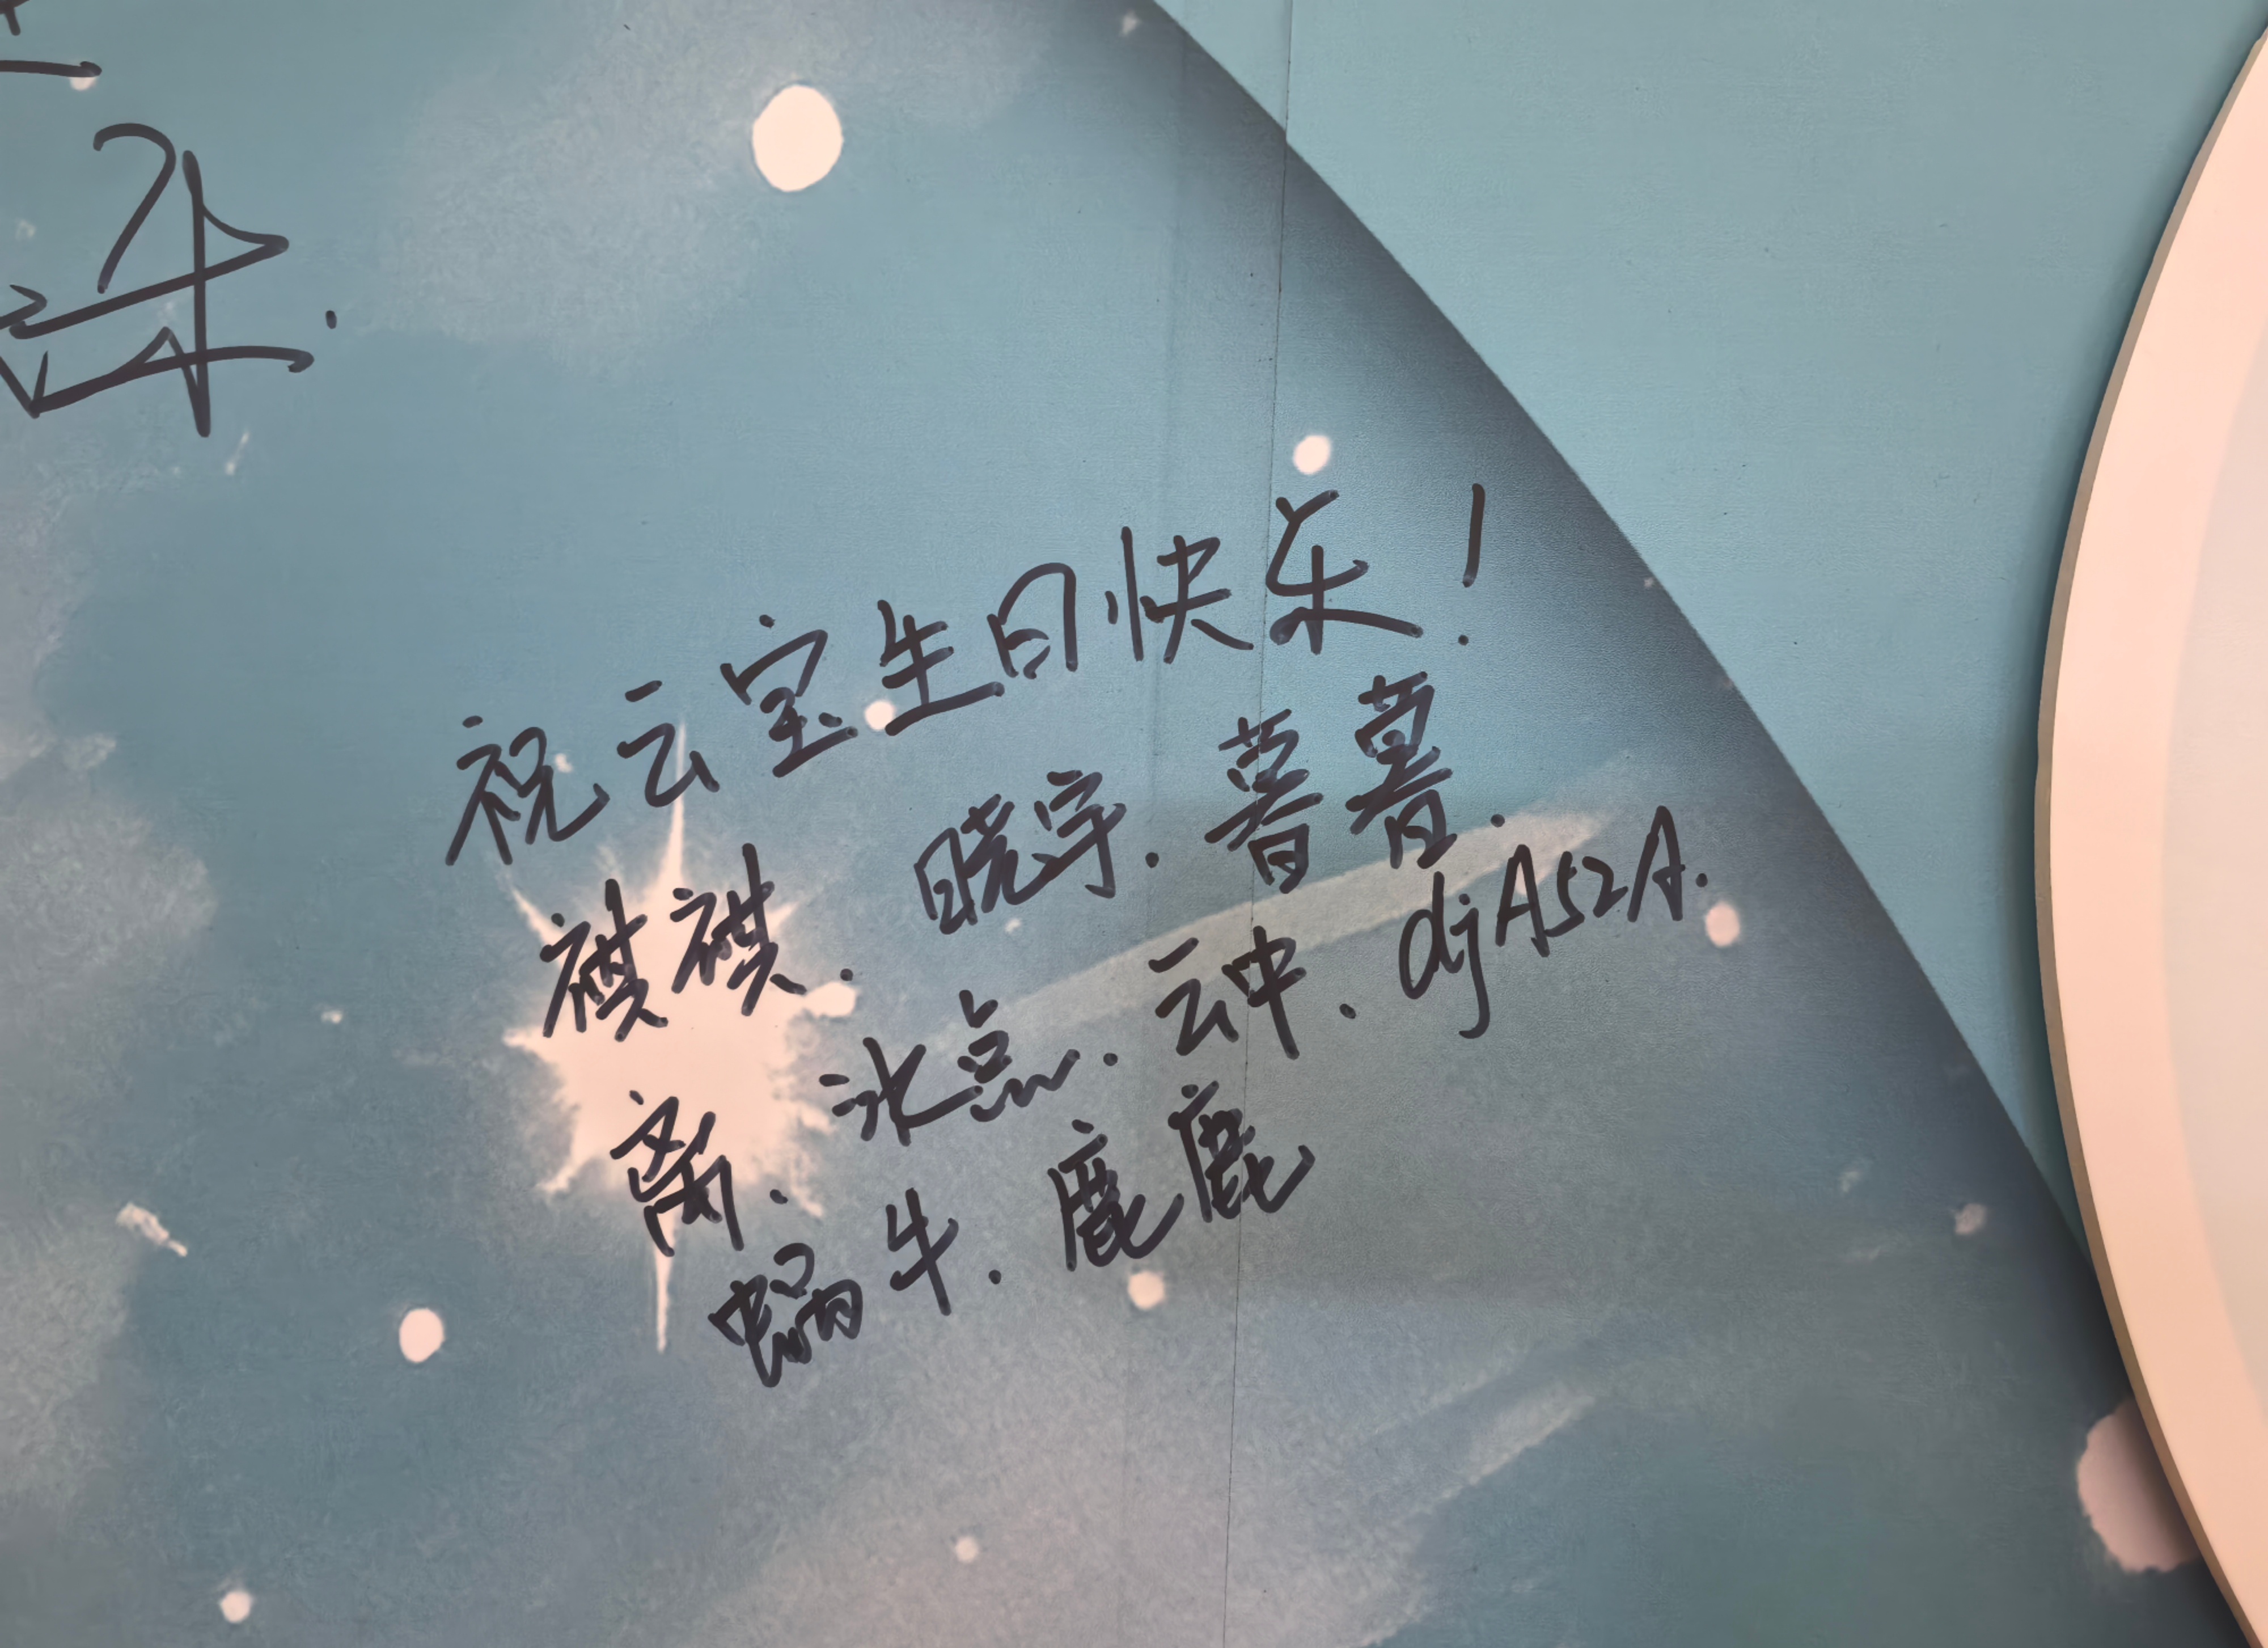 祝云宝生日快乐!
祺祺.晓宇.薯薯.
离.冰点.云中.djA52A.
蜗牛.鹿鹿